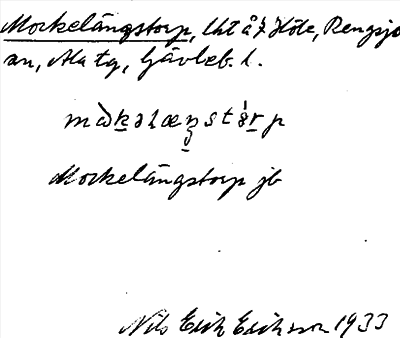 Mockelängstorp, lht å Höle, Rengsjö
sn, Ala tg, Gävleb. l.
Mockelängstorp jb
Nils Erik Eriksson 1933